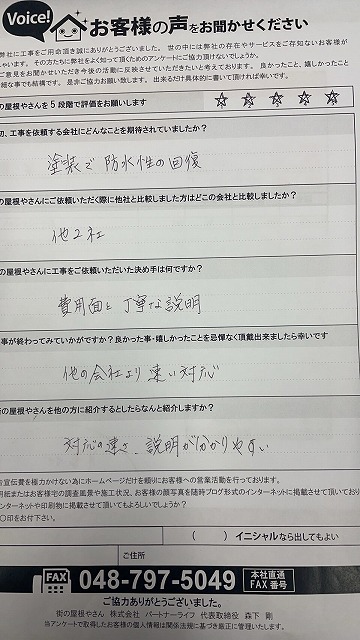 Voice!
お客様の声をお聞かせください
弊社に工事をご用命頂き誠にありがとうございました。世の中には弊社の存在やサービスをご存知ないお客様が
しゃいます。その方たちに弊社をよく知って頂くためのアンケートにご協力頂けないでしょうか。
ご意見をお聞かせいただき今後の活動に反映させていただきたいと考えております。良かったこと、嬉しかったこと
細な事でも結構です。是非ご協力お願い致します。出来るだけ具体的に書いて頂ければ幸いです。
の屋根やさんを5段階で評価をお願いします
☆ ☆ ☆ ☆ ☆
初、工事を依頼する会社にどんなことを期待されていましたか?
塗装で防水性の回復
の屋根やさんにご依頼いただく際に他社と比較しました方はどこの会社と比較しましたか?
他2社
の屋根やさんに工事をご依頼いただいた決め手は何ですか?
費用面と丁寧な説明
事が終わってみていかがですか?良かった事・嬉しかったことを忌憚なく頂戴出来ましたら幸いです
他の会社より速い対応
街の屋根やさんを他の方に紹介するとしたらなんと紹介しますか?
対応の速さ、説明が分かりやすい
広告宣伝費を極力かけない為にホームページだけを頼りにお客様への営業活動を行っております。
用紙またはお客様宅の調査風景や施工状況、お客様の顔写真を随時ブログ形式のインターネットに掲載させて頂いており
ンターネットや印刷物に掲載させて頂いてもよろしいでしょうか?
〇印をお付下さい。
( )イニシャルなら出してもよい
ご住所
FAX 048-797-5049 本社直通 FAX番号
ご協力ありがとうございました。
街の屋根やさん 株式会社 パートナーライフ 代表取締役 森下 剛
当アンケートで取得したお客様の個人情報は関係法規に基づき厳正に管理いたします。